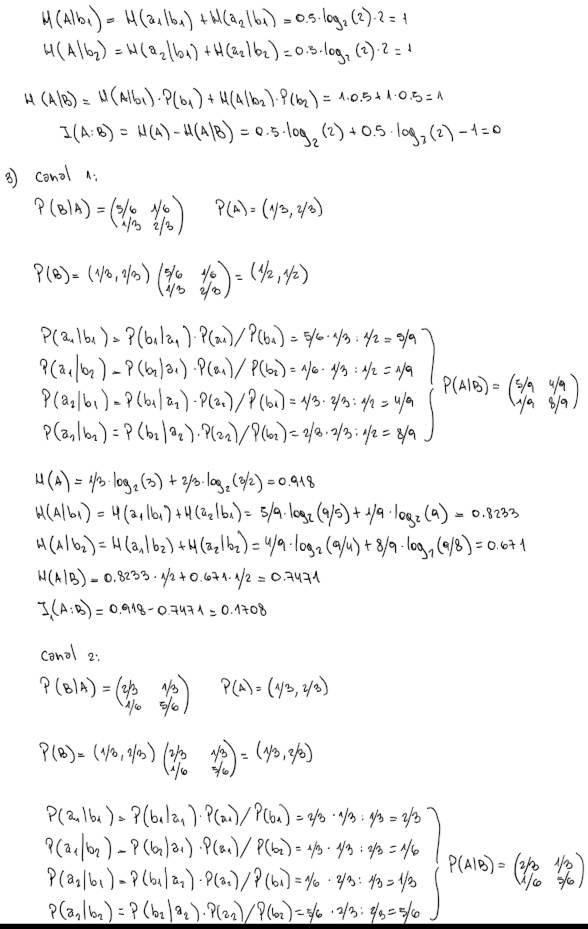 H(A|b₁) = H(a₁|b₁) + H(a₂|b₁) = 0.5·log₂(2)·2 = 1
H(A|b₂) = H(a₂|b₁) + H(a₂|b₂) = 0.5·log₂(2)·2 = 1
H(A|B) = H(A|b₁)·P(b₁) + H(A|b₂)·P(b₂) = 1·0.5 + 1·0.5 = 1
I(A:B) = H(A) - H(A|B) = 0.5·log₂(2) + 0.5·log₂(2) - 1 = 0
3) Canal 1:
P(B|A) = (5/6 1/6
1/3 2/3) P(A) = (1/3, 2/3)
P(B) = (1/3, 2/3) (5/6 1/6
1/3 2/3) = (1/2, 1/2)
P(a₁|b₁) = P(b₁|a₁)·P(a₁)/P(b₁) = 5/6·1/3 : 1/2 = 5/9
P(a₁|b₂) = P(b₂|a₁)·P(a₁)/P(b₂) = 1/6·1/3 : 1/2 = 1/9
P(a₂|b₁) = P(b₁|a₂)·P(a₂)/P(b₁) = 1/3·2/3 : 1/2 = 4/9
P(a₂|b₂) = P(b₂|a₂)·P(a₂)/P(b₂) = 2/3·2/3 : 1/2 = 8/9
P(A|B) = (5/9 4/9
1/9 8/9)
H(A) = 1/3·log₂(3) + 2/3·log₂(3/2) = 0.918
H(A|b₁) = H(a₁|b₁) + H(a₂|b₁) = 5/9·log₂(9/5) + 1/9·log₂(9) = 0.8233
H(A|b₂) = H(a₁|b₂) + H(a₂|b₂) = 4/9·log₂(9/4) + 8/9·log₂(9/8) = 0.671
H(A|B) = 0.8233·1/2 + 0.671·1/2 = 0.7471
I₁(A:B) = 0.918 - 0.7471 = 0.1708
Canal 2:
P(B|A) = (2/3 1/3
1/6 5/6) P(A) = (1/3, 2/3)
P(B) = (1/3, 2/3) (2/3 1/3
1/6 5/6) = (1/3, 2/3)
P(a₁|b₁) = P(b₁|a₁)·P(a₁)/P(b₁) = 2/3·1/3 : 1/3 = 2/3
P(a₁|b₂) = P(b₂|a₁)·P(a₁)/P(b₂) = 1/3·1/3 : 2/3 = 1/6
P(a₂|b₁) = P(b₁|a₂)·P(a₂)/P(b₁) = 1/6·2/3 : 1/3 = 1/3
P(a₂|b₂) = P(b₂|a₂)·P(a₂)/P(b₂) = 5/6·2/3 : 2/3 = 5/6
P(A|B) = (2/3 1/3
1/6 5/6)